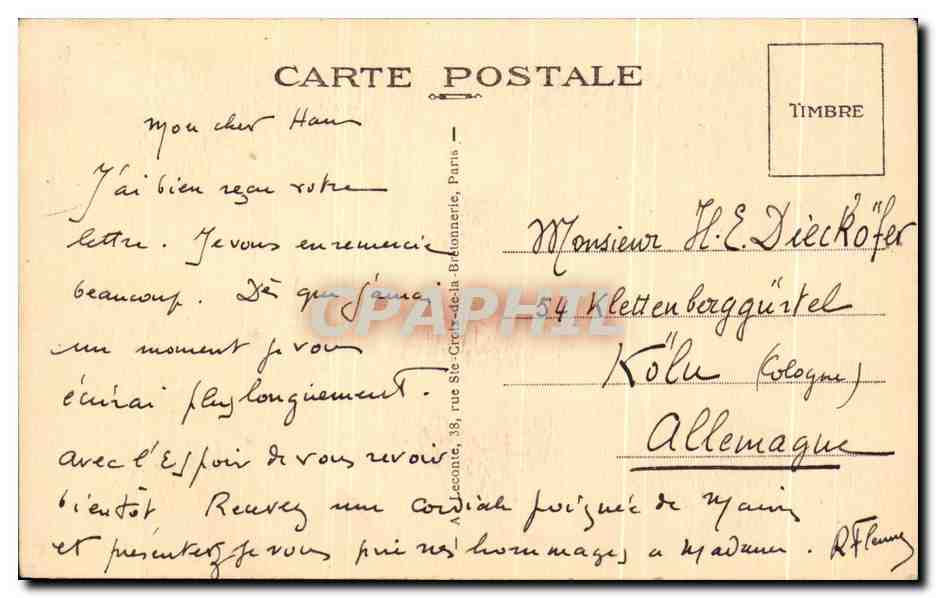 CARTE POSTALE
TIMBRE
Mon cher Hans
J'ai bien reçu votre
lettre. Je vous en remercie
beaucoup. Dès que j'aurai
un moment je vous
écrirai plus longuement.
avec l'Espoir de vous revoir
bientôt Recevez une cordiale poignée de Mains
et présentez je vous prie mes hommages a Madame. R
A. Leconte, 38, rue Ste-Croix-de-la-Bretonnerie, Paris
Monsieur H. E. Dieckőfer
54 Klettenberggürtel
Köln (Cologne)
Allemagne
CPAPHIL